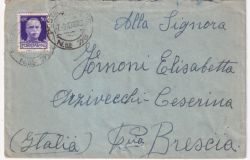 Alla Signora
Fornoni Elisabetta
Orzivecchi - Ceserina
(Italia) Brescia